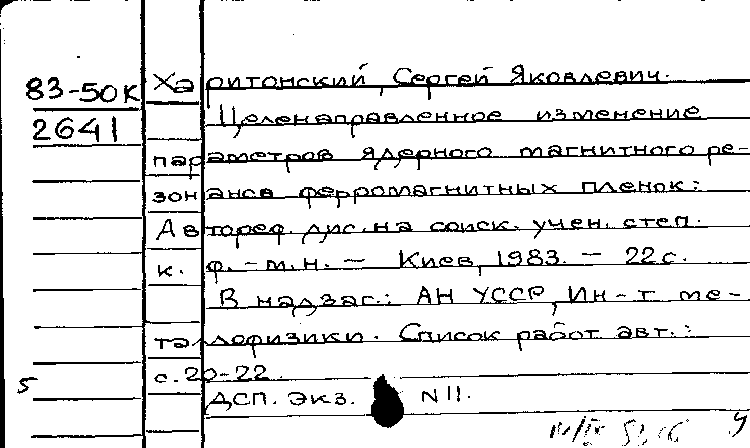 83-50К
2641
Харитонский, Сергей Яковлевич.
Целенаправленное изменение
параметров ядерного магнитного ре-
зонанса ферромагнитных пленок:
Автореф. дис. на соиск. учен. степ.
к. ф.-м.н. — Киев, 1983. — 22 с.
В надзаг.: АН УССР, Ин-т ме-
таллофизики. Список работ авт.:
с. 20-22.
5
ДСП. Экз. N 11.